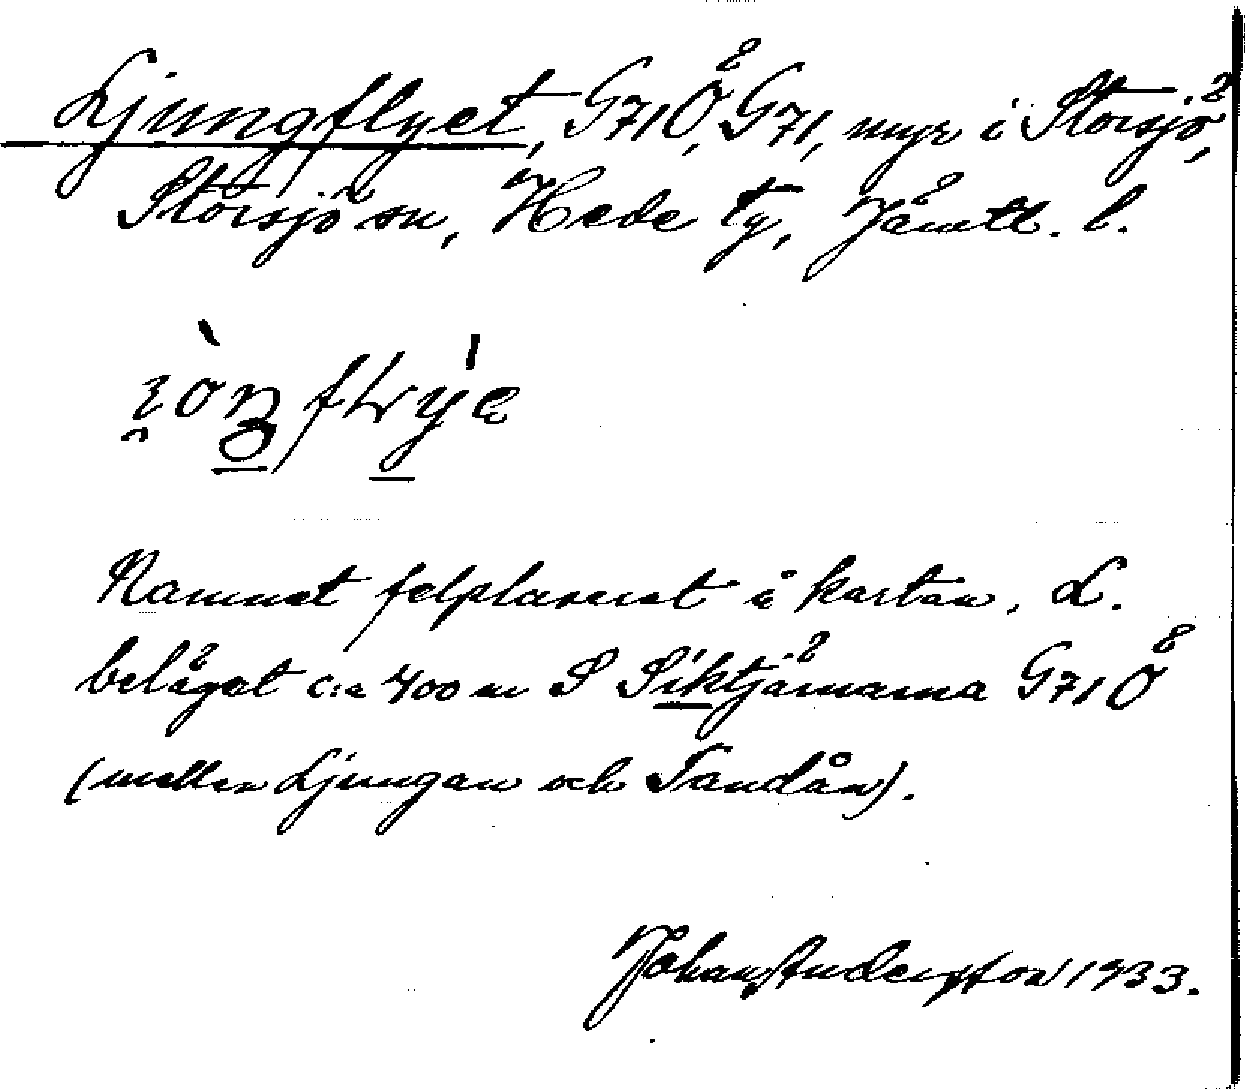 Ljungflyet, G71Ö, G71, myr i Storsjö,
Storsjö sn, Hede tg, Jämtl. l.
Namnet felplacerat å kartan. L.
beläget c:a 400 m S Siktjärnarna G71Ö
(mellan Ljungan och Tandån).
Johan Andersson 1933.